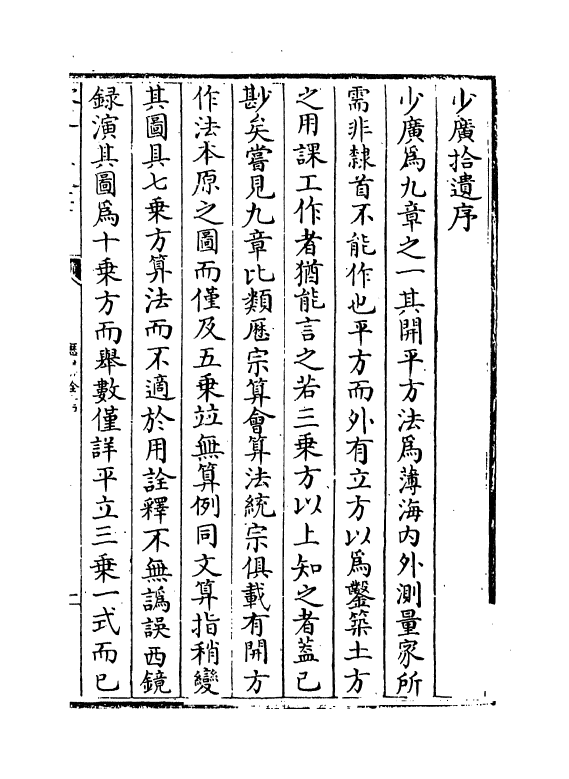 少廣拾遺序
少廣爲九章之一其開平方法爲薄海内外測量家所
需非隸首不能作也平方而外有立方以爲鑿築土方
之用課工作者猶能言之若三乗方以上知之者葢已
尠矣嘗見九章比類厯宗算會算法統宗俱載有開方
作法本原之圖而僅及五乗竝無算例同文算指稍變
其圖具七乗方算法而不適於用詮釋不無譌誤西鏡
録演其圖爲十乗方而舉數僅詳平立三乗一式而已